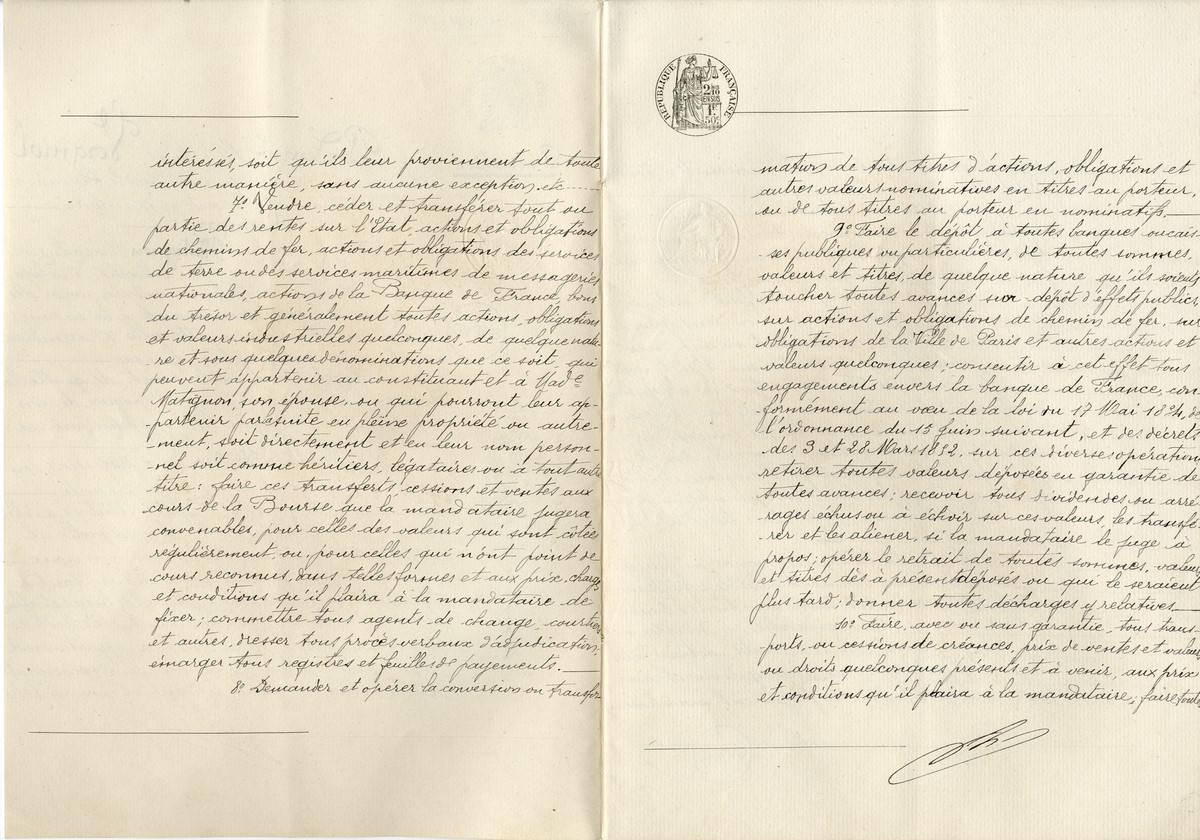 intéressés, soit qu'ils leur proviennent de toute
autre manière, sans aucune exception, etc
7° Vendre, céder et transférer tout ou
partie des rentes sur l'État, actions et obligations
de chemins de fer, actions et obligations des services
de terre ou des services maritimes de messageries
nationales, actions de la Banque de France, bons
du trésor et généralement toutes actions, obligations
et valeurs industrielles quelconques, de quelque natu-
re et sous quelques dénominations que ce soit, qui
peuvent appartenir au constituant et à Made
Matignon, son épouse, ou qui pourront leur ap-
-partenir par la suite en pleine propriété ou autre-
-ment, soit directement et en leur nom person-
-nel soit comme héritiers, légataires ou à tout autre
titre: faire ces transferts, cessions et ventes aux
cours de la Bourse que la mandataire jugera
convenables, pour celles des valeurs qui sont côtées
régulièrement, ou, pour celles qui n'ont point de
cours reconnus, dans telles formes et aux prix, charges
et conditions qu'il plaira à la mandataire de
fixer; commettre tous agents de change, courtiers
et autres, dresser tous procès verbaux d'adjudication
émarger tous registres et feuilles de payements.
8° Demander et opérer la conversion ou transfor
RÉPUBLIQUE FRANÇAISE
2/10 EN SUS
1F 50c
mation de tous titres d'actions, obligations et
autres valeurs nominatives en titres au porteur,
ou de tous titres au porteur en nominatifs.
9° Faire le dépôt à toutes banques ou cais-
ses publiques ou particulières, de toutes sommes,
valeurs et titres, de quelque nature qu'ils soient
toucher toutes avances sur dépôt d'effets publics
sur actions et obligations de chemin de fer, sur
obligations de la Ville de Paris et autres actions et
valeurs quelconques; consentir à cet effet tous
engagements envers la banque de France, con
formément au vœu de la loi du 17 Mai 1834, de
l'ordonnance du 15 juin suivant, et des décrets
des 3 et 28 Mars 1852, sur ces diverses opérations
retirer toutes valeurs déposées en garantie de
toutes avances; recevoir tous dividendes ou arré
rages échus ou à échoir sur ces valeurs, les transfé
rer et les aliener, si la mandataire le juge à
propos; opérer le retrait de toutes sommes, valeurs
et titres dès à présent déposés ou qui le seraient
plus tard; donner toutes décharges y relatives
10° Faire, avec ou sans garantie, tous trans-
ports, ou cessions de créances, prix de ventes et valeurs
ou droits quelconques présents et à venir, aux prix
et conditions qu'il plaira à la mandataire; faire toute